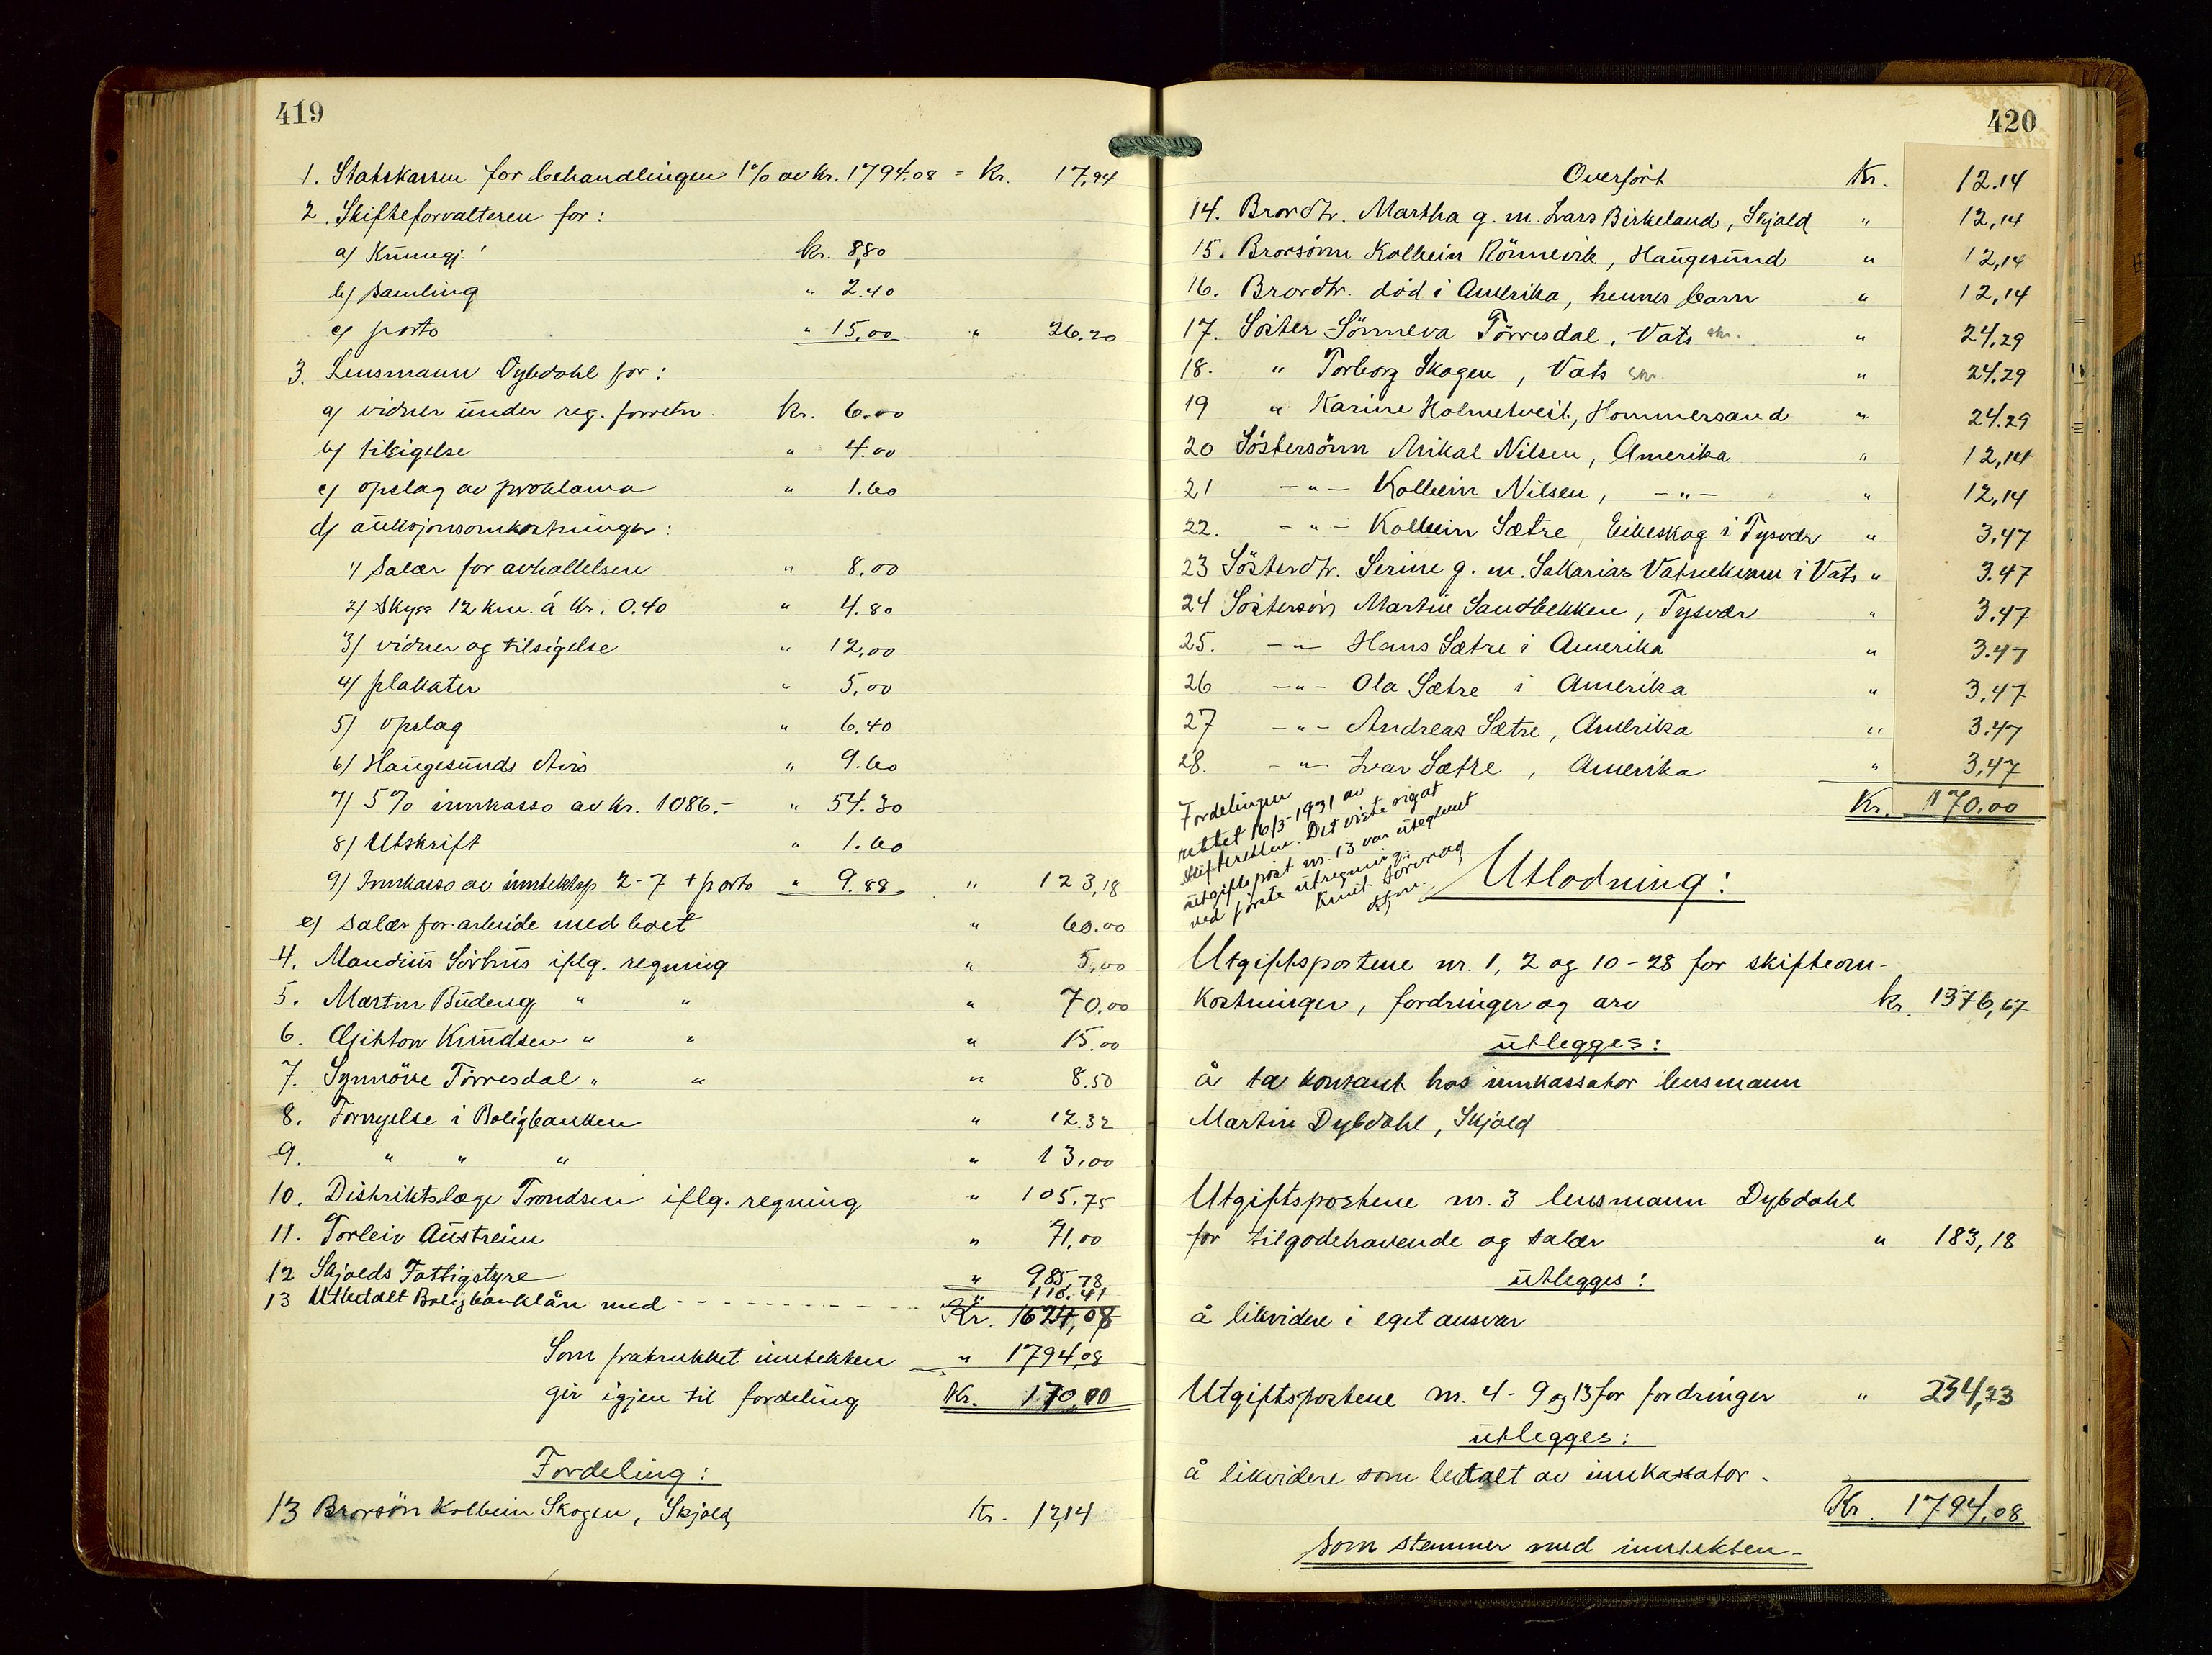 419
1. Statskassen for behandlingen 1% av kr. 1794.08 = Kr. 17,94
2. Skifteforvalteren for:
a) Kunngj. kr. 8,80
b) samling " 2.40
c) porto " 15,00 " 26.20
3. Lensmann Dybdahl for:
a) vidner under reg. forretn. kr. 6.00
b) tilsigelse " 4.00
c) opslag av proklama " 1.60
d) auksjonsomkostninger:
1) Salær for avhollelsen " 8.00
2) Skyss 12 km. á kr. 0.40 " 4.80
3) vidner og tilsigelse " 12,00
4) plakater " 5,00
5) opslag " 6.40
6) Haugesunds Avis " 9.60
7) 5% innkasso av kr. 1086.- " 54.30
8) Utskrift " 1.60
9) Innkasso av inntektsp 2-7 + porto " 9.88 " 123,18
e) salær for arbeide med boet " 60.00
4. Maudius Sörhus iflg. regning " 5,00
5. Martin Budeng " " " 70.00
6. Knudsen " " " 15.00
7. Synnöve Törresdal " " " 8.50
8. Fornyelse i Boligbanken " 12.32
9. " " " " 13,00
10. Distriktslæge Trondsen iflg. regning " 105.75
11. Torleiv Austreim " 71,00
12 Skjolds Fattigstyre " 985,78
13 Utbetalt Boligbanklån med - - - - - - - - - " 110.41
Kr. 1624,08
Som fratrukket inntekten " 1794,08
gir igjen til fordeling Kr. 170,00
Fordeling:
13 Brorsön Kolbein Skogen, Skjold, Kr. 12,14
420
Overført Kr. 12.14
14. Brordtr. Martha g. m. Lars Birkeland, Skjold " 12,14
15. Brorsönn Kolbein Rönnevik, Haugesund " 12,14
16. Brordtr. död i Amerika, hennes barn " 12,14
17. Söster Sönneva Törresdal, Vats skr. " 24,29
18. " Torborg Skogen, Vats skr. " 24.29
19 " Karine Holmetveit, Hommersand " 24.29
20 Söstersönn Mikal Nilsen, Amerika " 12,14
21 -"- Kolbein Nilsen, -"- " 12,14
22. -"- Kolbein Sætre, Eikeskog i Tysvær " 3.47
23 Sösterdtr. Serine g. m. Sakarias Vatnekvam i Vats " 3.47
24 Söstersön Martin Sandbekken, Tysvær " 3.47
25. -"- Hans Sætre i Amerika " 3.47
26 -"- Ola Sætre i Amerika " 3,47
27 -"- Andreas Sætre, Amerika " 3.47
28. -"- Ivar Sætre, Amerika " 3,47
Kr. 170.00
Fordelingen
rettet 16/3-1931 av
skifteretten. Det viste sig at
utgiftspost nr. 13 var uteglemt
ved förste utregning.
Knut Sörvaag
Utlodning:
Utgiftspostene nr. 1, 2 og 10-28 for skifteom-
kostninger, fordringer og arv kr. 1376,67
utlegges:
å ta kontant hos innkassator lensmann
Martin Dybdahl, Skjold
Utgiftspostene nr. 3 lensmann Dybdahl
for tilgodehavende og salær " 183,18
utlegges:
å likvidere i eget ansvar
Utgiftspostene nr. 4-9 og 13 for fordringer " 234,23
utlegges:
å likvidere som betalt av innkassator.
Kr. 1794,08
som stemmer med inntekten-